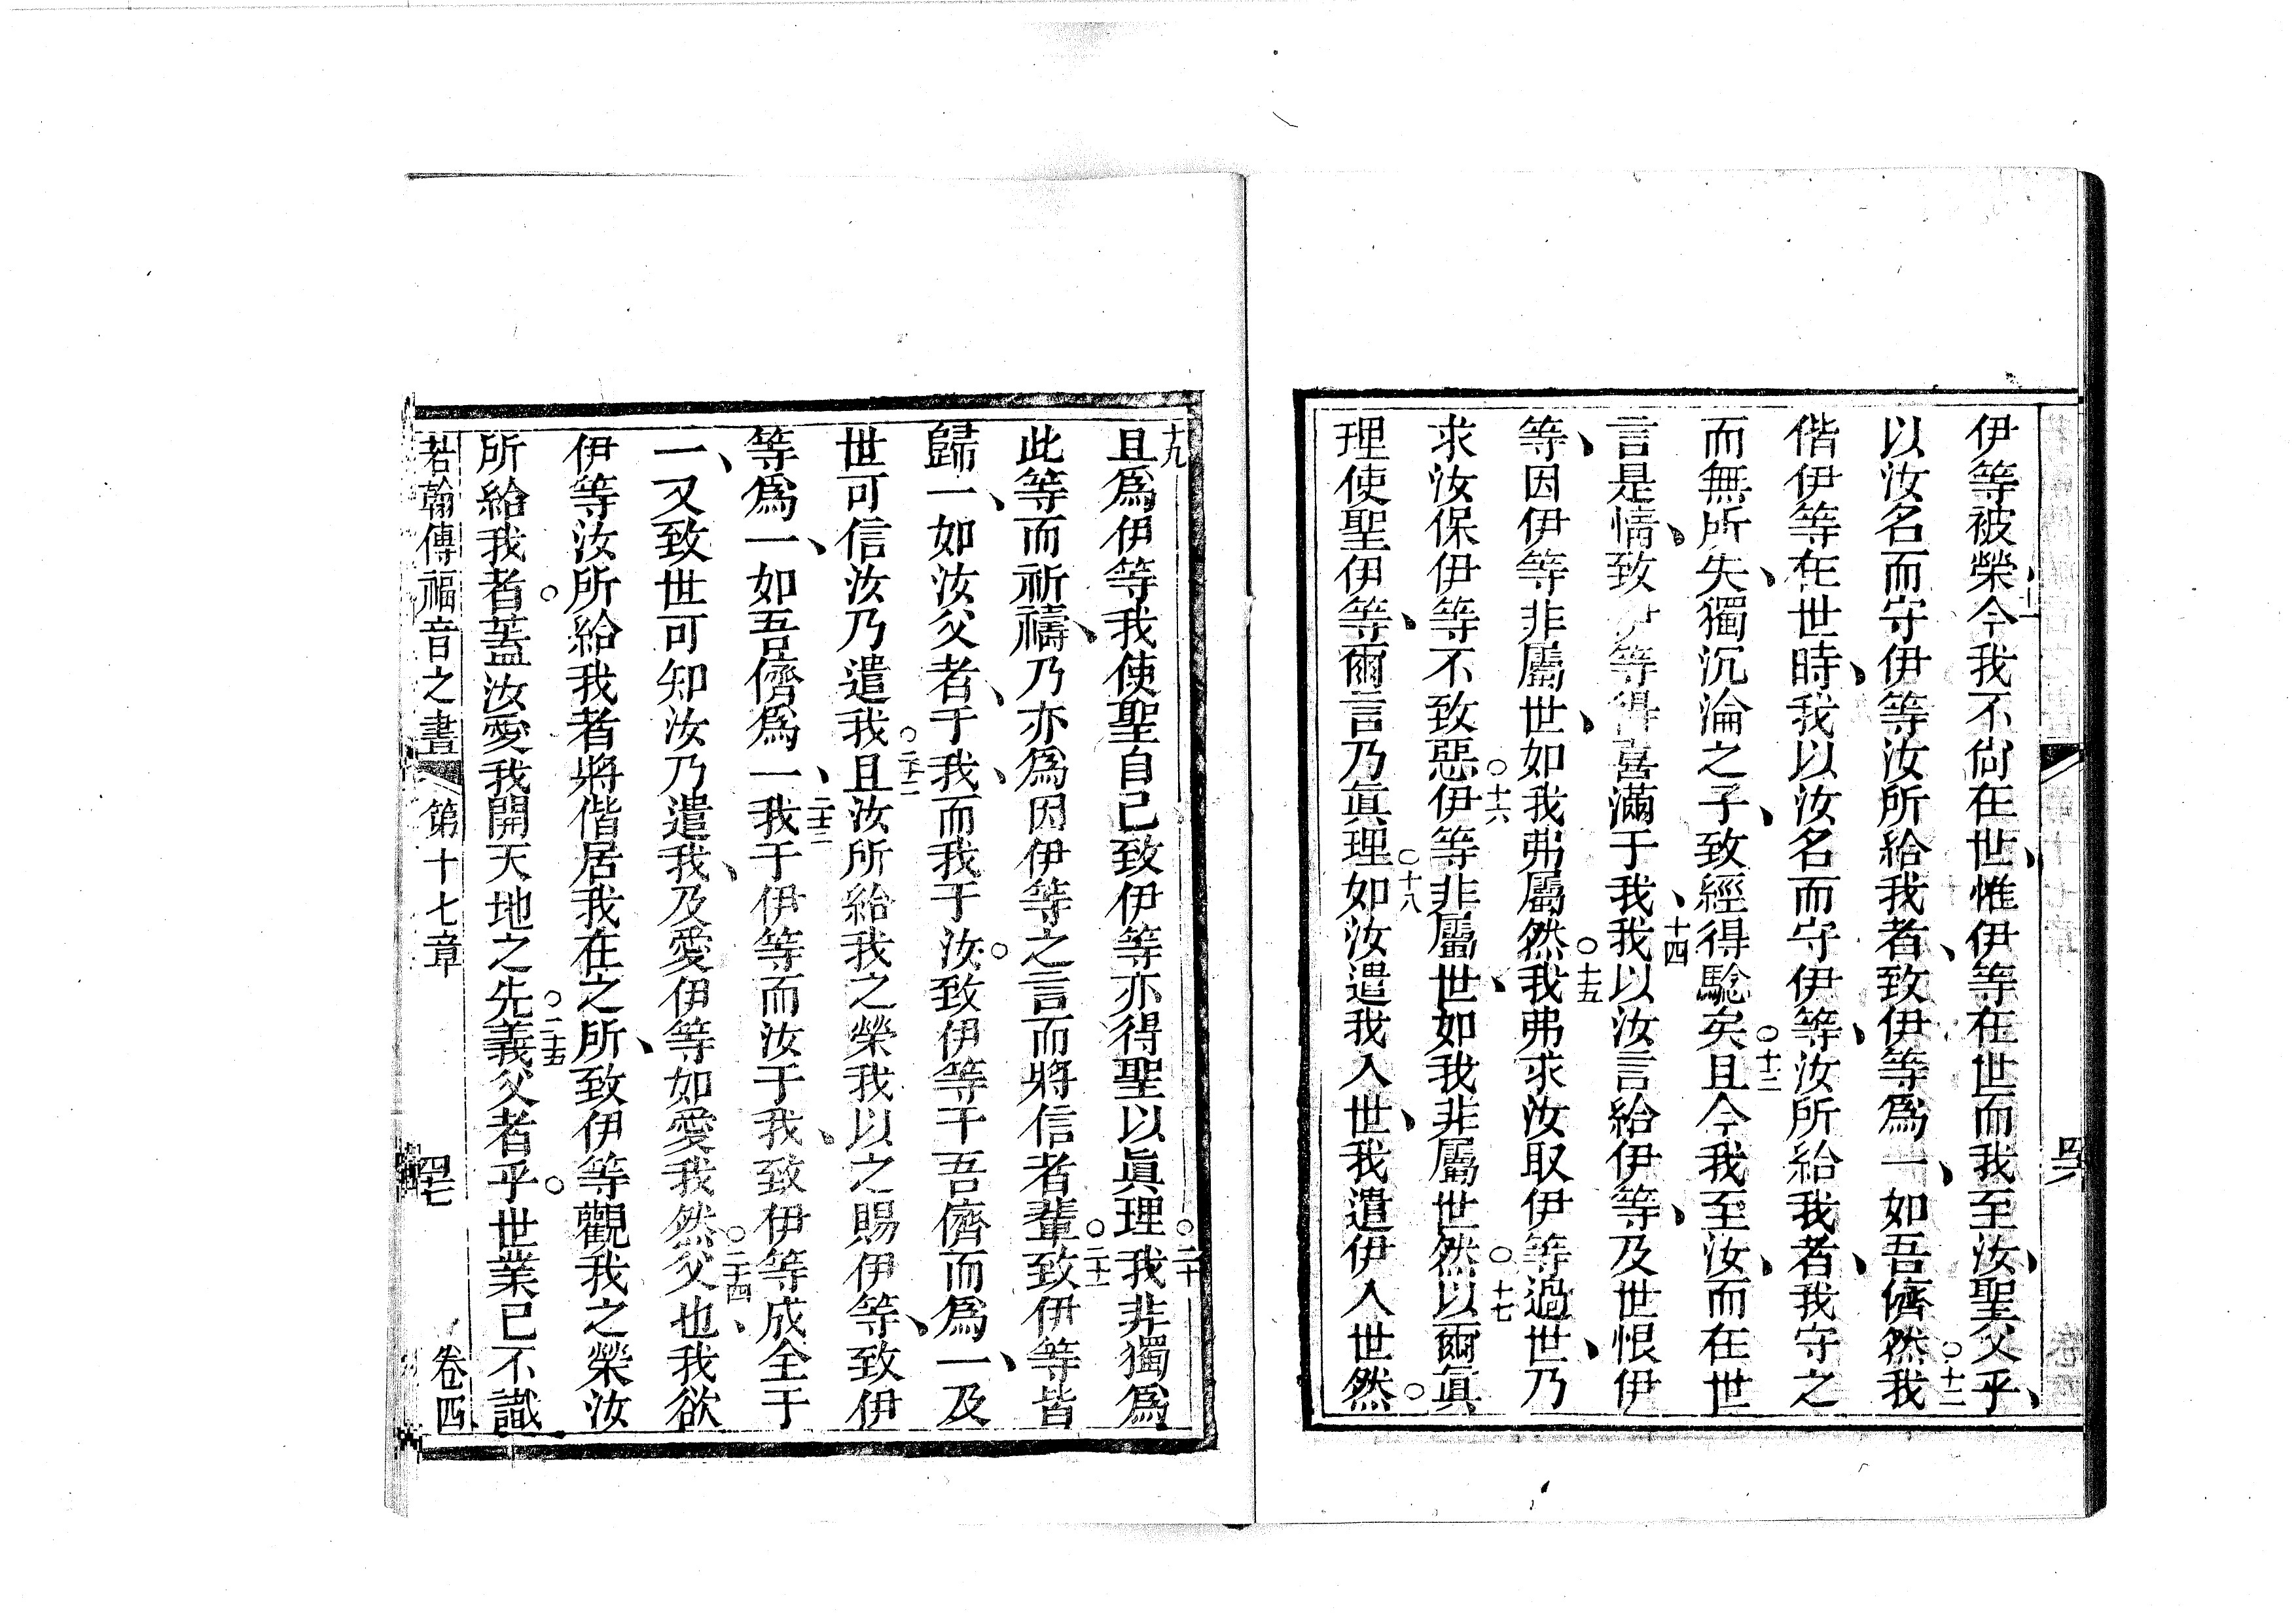 伊等被榮今我不尙在世、惟伊等在世而我至汝、聖父乎、
以汝名而守伊等汝所給我者、致伊等爲一、如吾儕然○十二我
偕伊等在世時、我以汝名而守伊等、汝所給我者、我守之
而無所失、獨沉淪之子、致經得騐矣○十三且今我至汝、而在世
言是情、致伊等得喜滿于我、十四我以汝言給伊等、及世恨伊
等、因伊等非屬世、如我弗屬然○十五我弗求汝取伊等過世、乃
求汝保伊等不致惡○十六伊等非屬世、如我非屬世然○十七以爾眞
理使聖伊等、爾言乃眞理○十八如汝遣我入世、我遣伊入世然○
十九且爲伊等我使聖自己致伊等亦得聖以眞理○二十我非獨爲
此等而祈禱、乃亦爲因伊等之言而將信者輩○二十一致伊等皆
歸一、如汝父者、于我、而我于汝○致伊等于吾儕而爲一、及
世可信汝乃遣我○二十二且汝所給我之榮我以之賜伊等、致伊
等爲一、如吾儕爲一、二十三我于伊等而汝于我、致伊等成全于
一、又致世可知汝乃遣我、及愛伊等如愛我然○二十四父也、我欲
伊等汝所給我者將偕居我在之所、致伊等觀我之榮汝
所給我者○蓋汝愛我開天地之先○二十五義父者乎○世業已不識
若翰傳福音之書 第十七章 四七 卷四